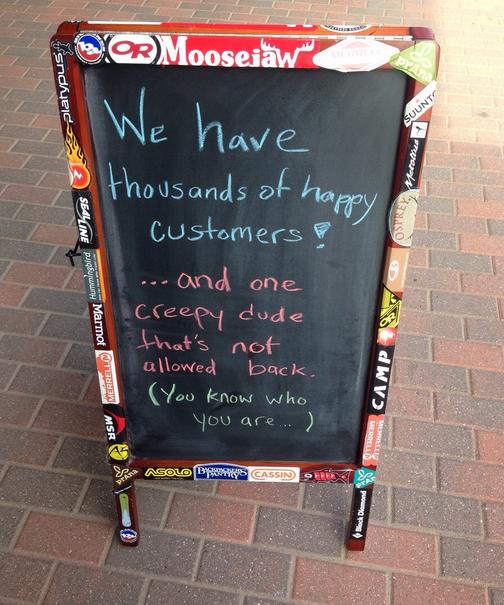 OR Moosejaw MERRELL prana
platypus
SUUNTO
Metolius
We have
thousands of happy
customers!
SEALLINE
OSPREY
Hummingbird
... and one
creepy dude
that's not
allowed back.
Marmot
CAMP
MERRELL
(You know who
you are... )
MERRELL
MERRELL
MSR
prana ASOLO BACKPACKER'S PANTRY CASSIN prana
Black Diamond